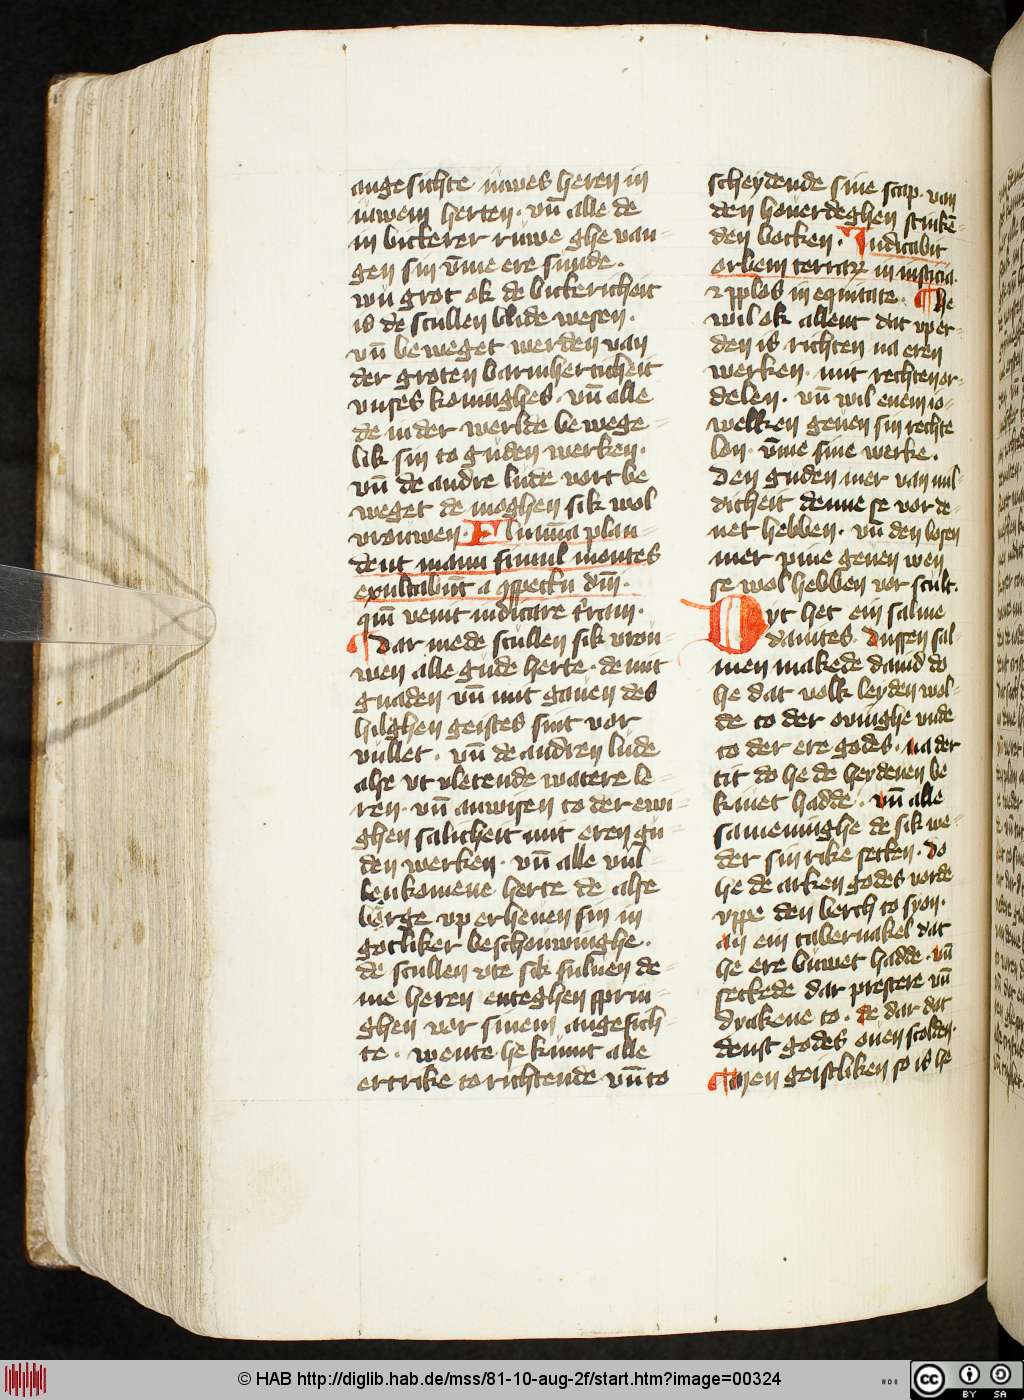 angesichte iuwes heren in
iuwem herten · vn̄ alle de
in bickerer ruwe ghe van-
gen sin v̄me ere sunde ·
wu grot ok de bickericheit
is de scullen blide wesen ·
vn̄ be weget werden van
der groten barmherticheit
vnses koninghes · vn̄ alle
de in der werlde be wege-
lik sin to guden werken ·
vn̄ de andre lude vort be
weget de moghen sik wol
vrouwen · Flumīa plau-
dent manu simul montes
exultabūt a ꝯspectu dn̄i ·
qm̄ venit iudicare t̄ram ·
¶ dar mede scullen sik vrou-
wen alle gude herte · de mit
gnaden vn̄ mit gauen des
hilghen geistes sint vor
vullet · vn̄ de andren lude
alse vt vletende watere le-
ren · vn̄ anwisen to der ewi-
ghen salicheit mit eren gu-
den werken · vn̄ alle vul-
lenkomene herte de alse
berge vp erheuen sin in
gotliker beschouwinghe ·
de scullen vte sik suluen de-
me heren enteghen sprin-
ghen vor sinem angesich-
te · wente he kumt alle
ertrike to richtende vn̄ to
scheydende sine scap · van
den houerdeghen stinkē-
den bocken · Iudicabit
orbem terraꝝ in iusticia ·
⁊ pp̄los in equitate · ¶ he
wil ok allent dat vp er-
den is richten na eren
werken · mit rechten or-
delen · vn̄ wil enem io-
welken geuen sin rechte
lon · v̄me sine werke ·
Den guden mer van mil-
dicheit denne se vor de-
net hebben · vn̄ den bosen
mer pine geuen wen
se wol hebben vor scult ·
Dyt het ein salme
dauites · dussen sal-
men makede dauid do
he dat volk leyden wol-
de to der ouinghe vnde
to der ere godes · na der
tit do he de heydenen be
kant hadde · vn̄ alle
sameninghe de sik we-
der sin rike setten · do
he de arken godes vorde
vppe den berch to syon ·
an ein tabernakel dat
he ere buwet hadde · vn̄
settede dar prestere vn̄
dyakene to · de dar dat
denst godes ouen scolden ·
¶ Men geistliken so is he
© HAB http://diglib.hab.de/mss/81-10-aug-2f/start.htm?image=00324
cc BY SA